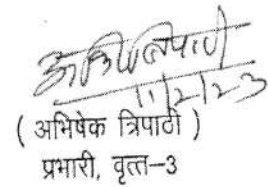 11/2/23
( अभिषेक त्रिपाठी )
प्रभारी, वृत्त–3